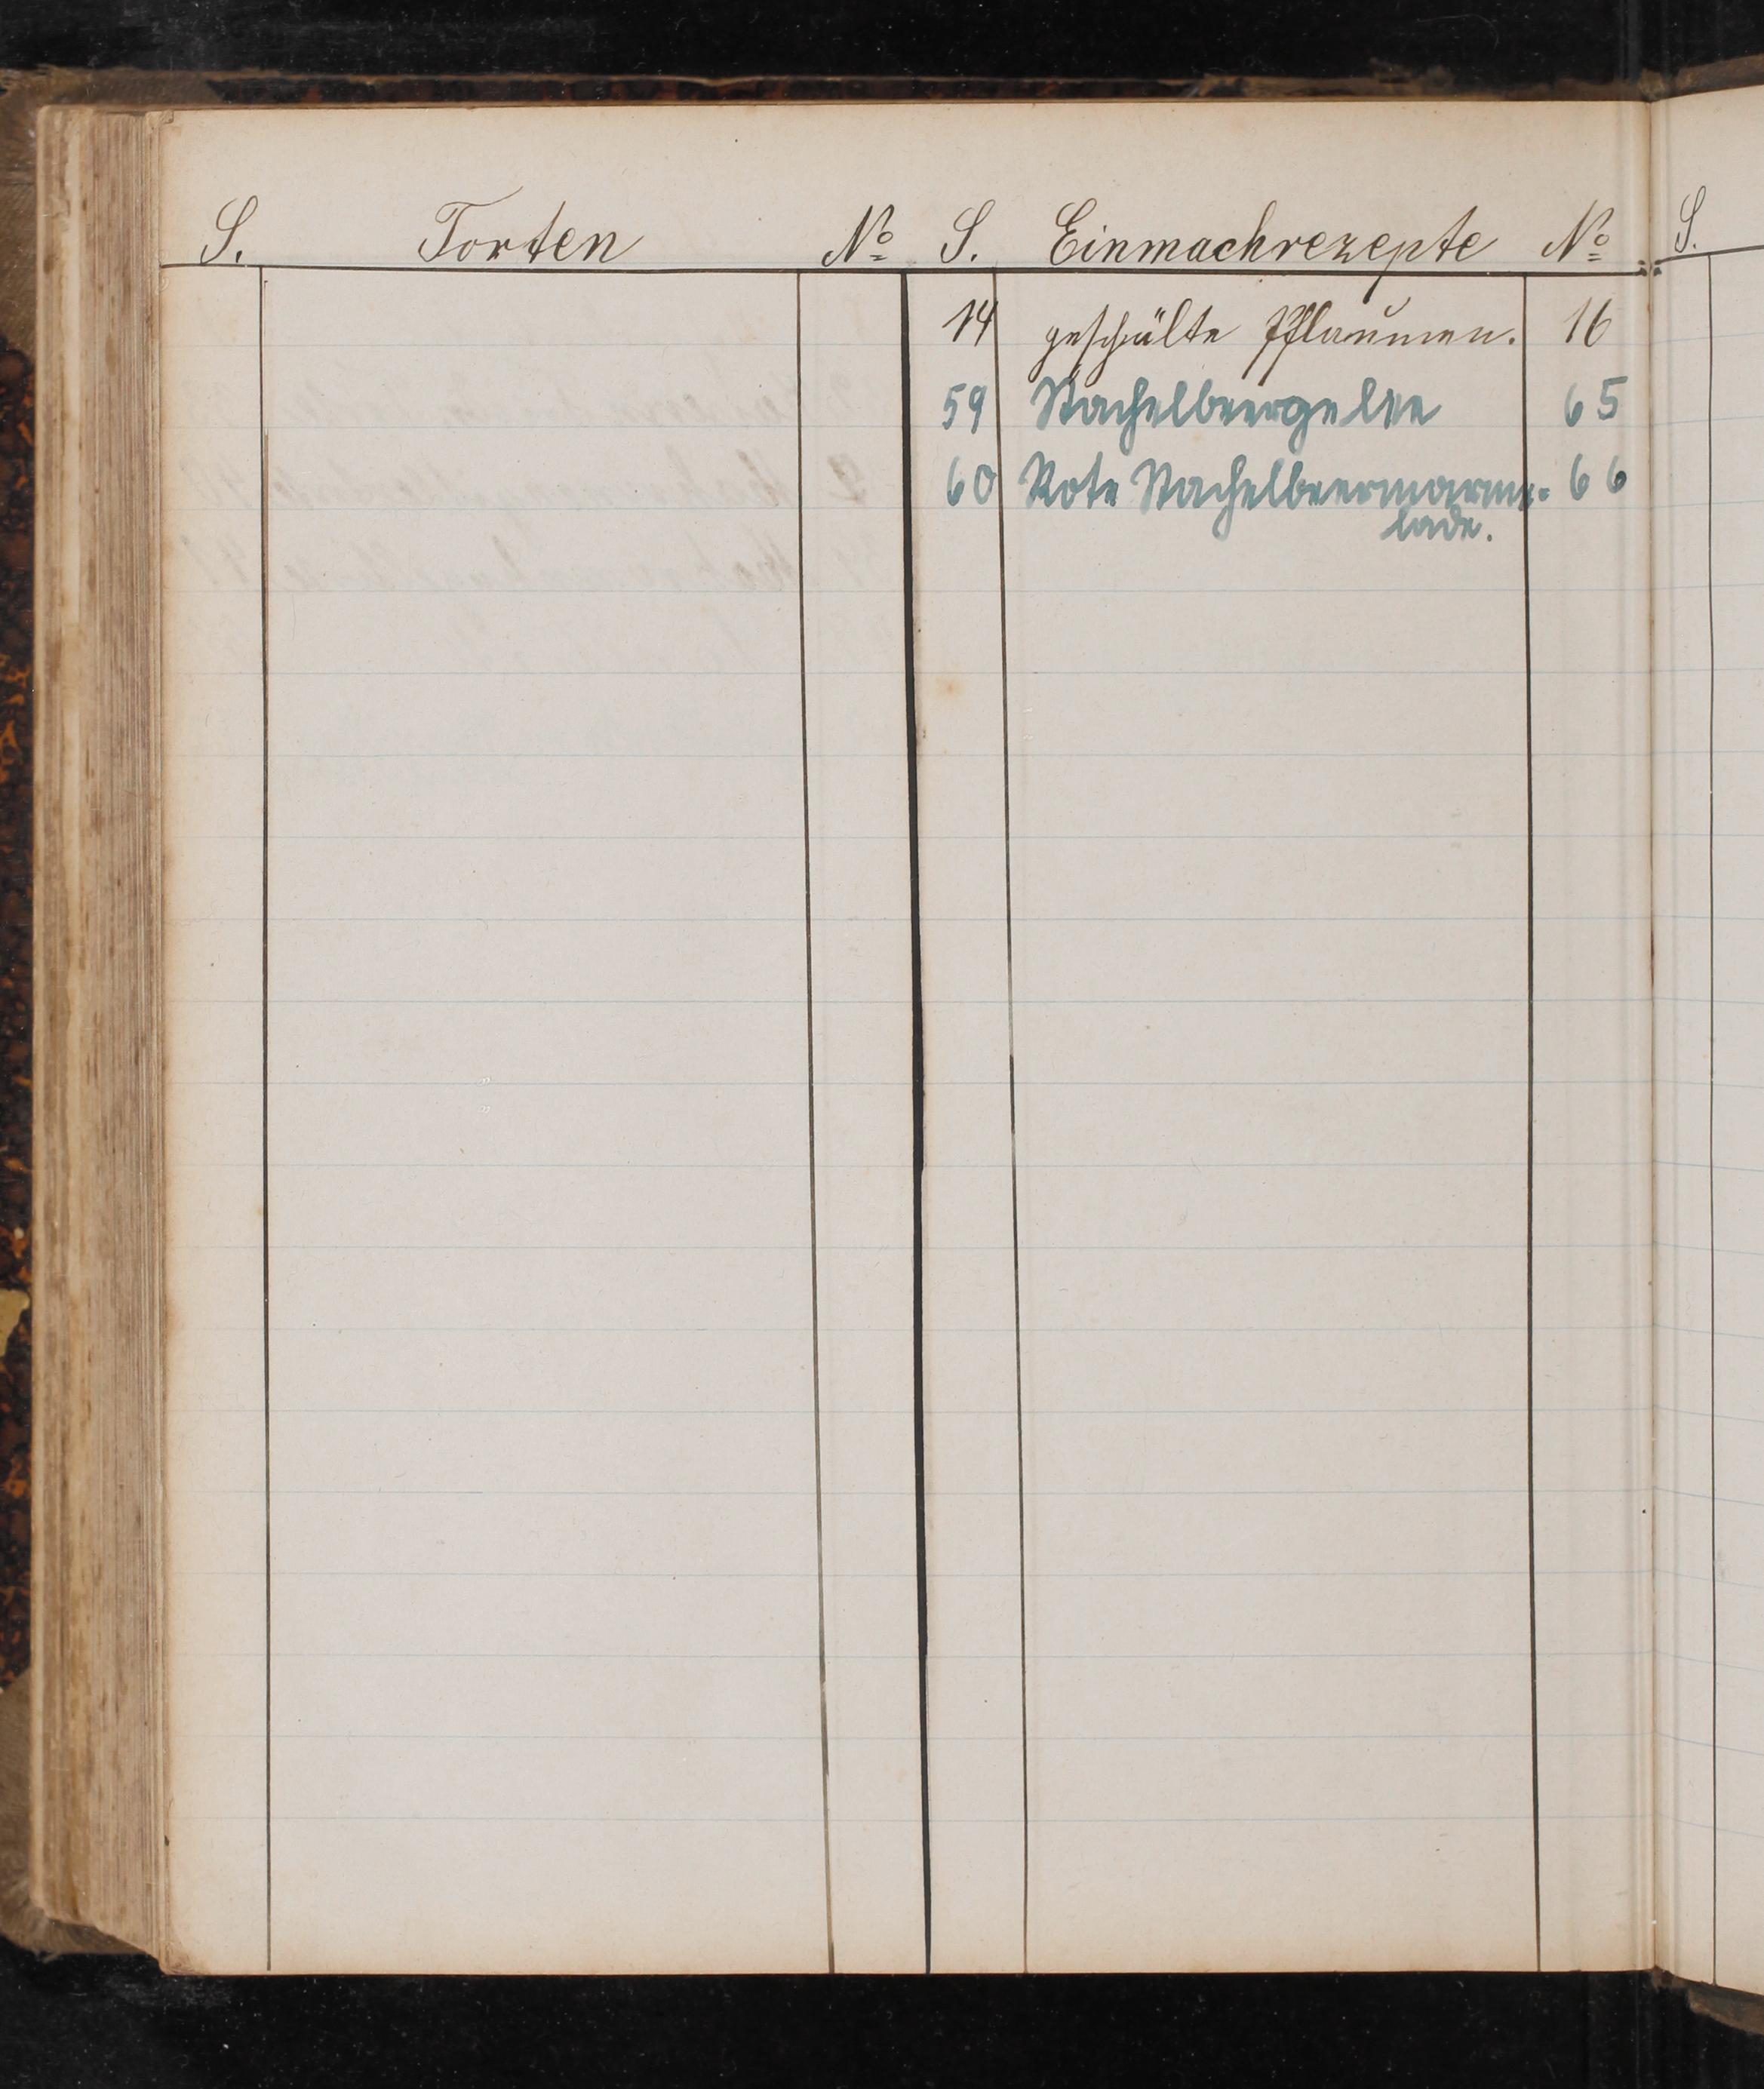 S. Torten No S. Einmachrezepte No S.
14 geschälte Pflaumen. 16
59 Stachelbeergelee 65
60 Rote Stachelbeermarme- 66
lade.